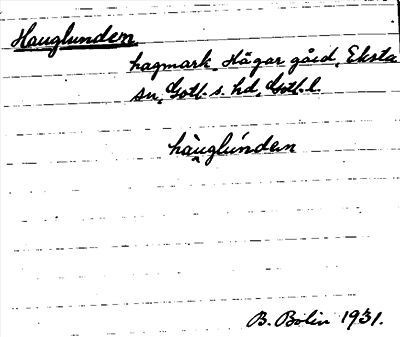 Hauglunden.
hagmark, Hägar gård, Eksta
sn, Gotl. s. hd, Gotl. l.
hàu̯glúndεn
B. Bolin 1931.